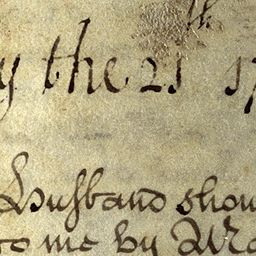 y the 21th 17
Husband shou
to me by Ma